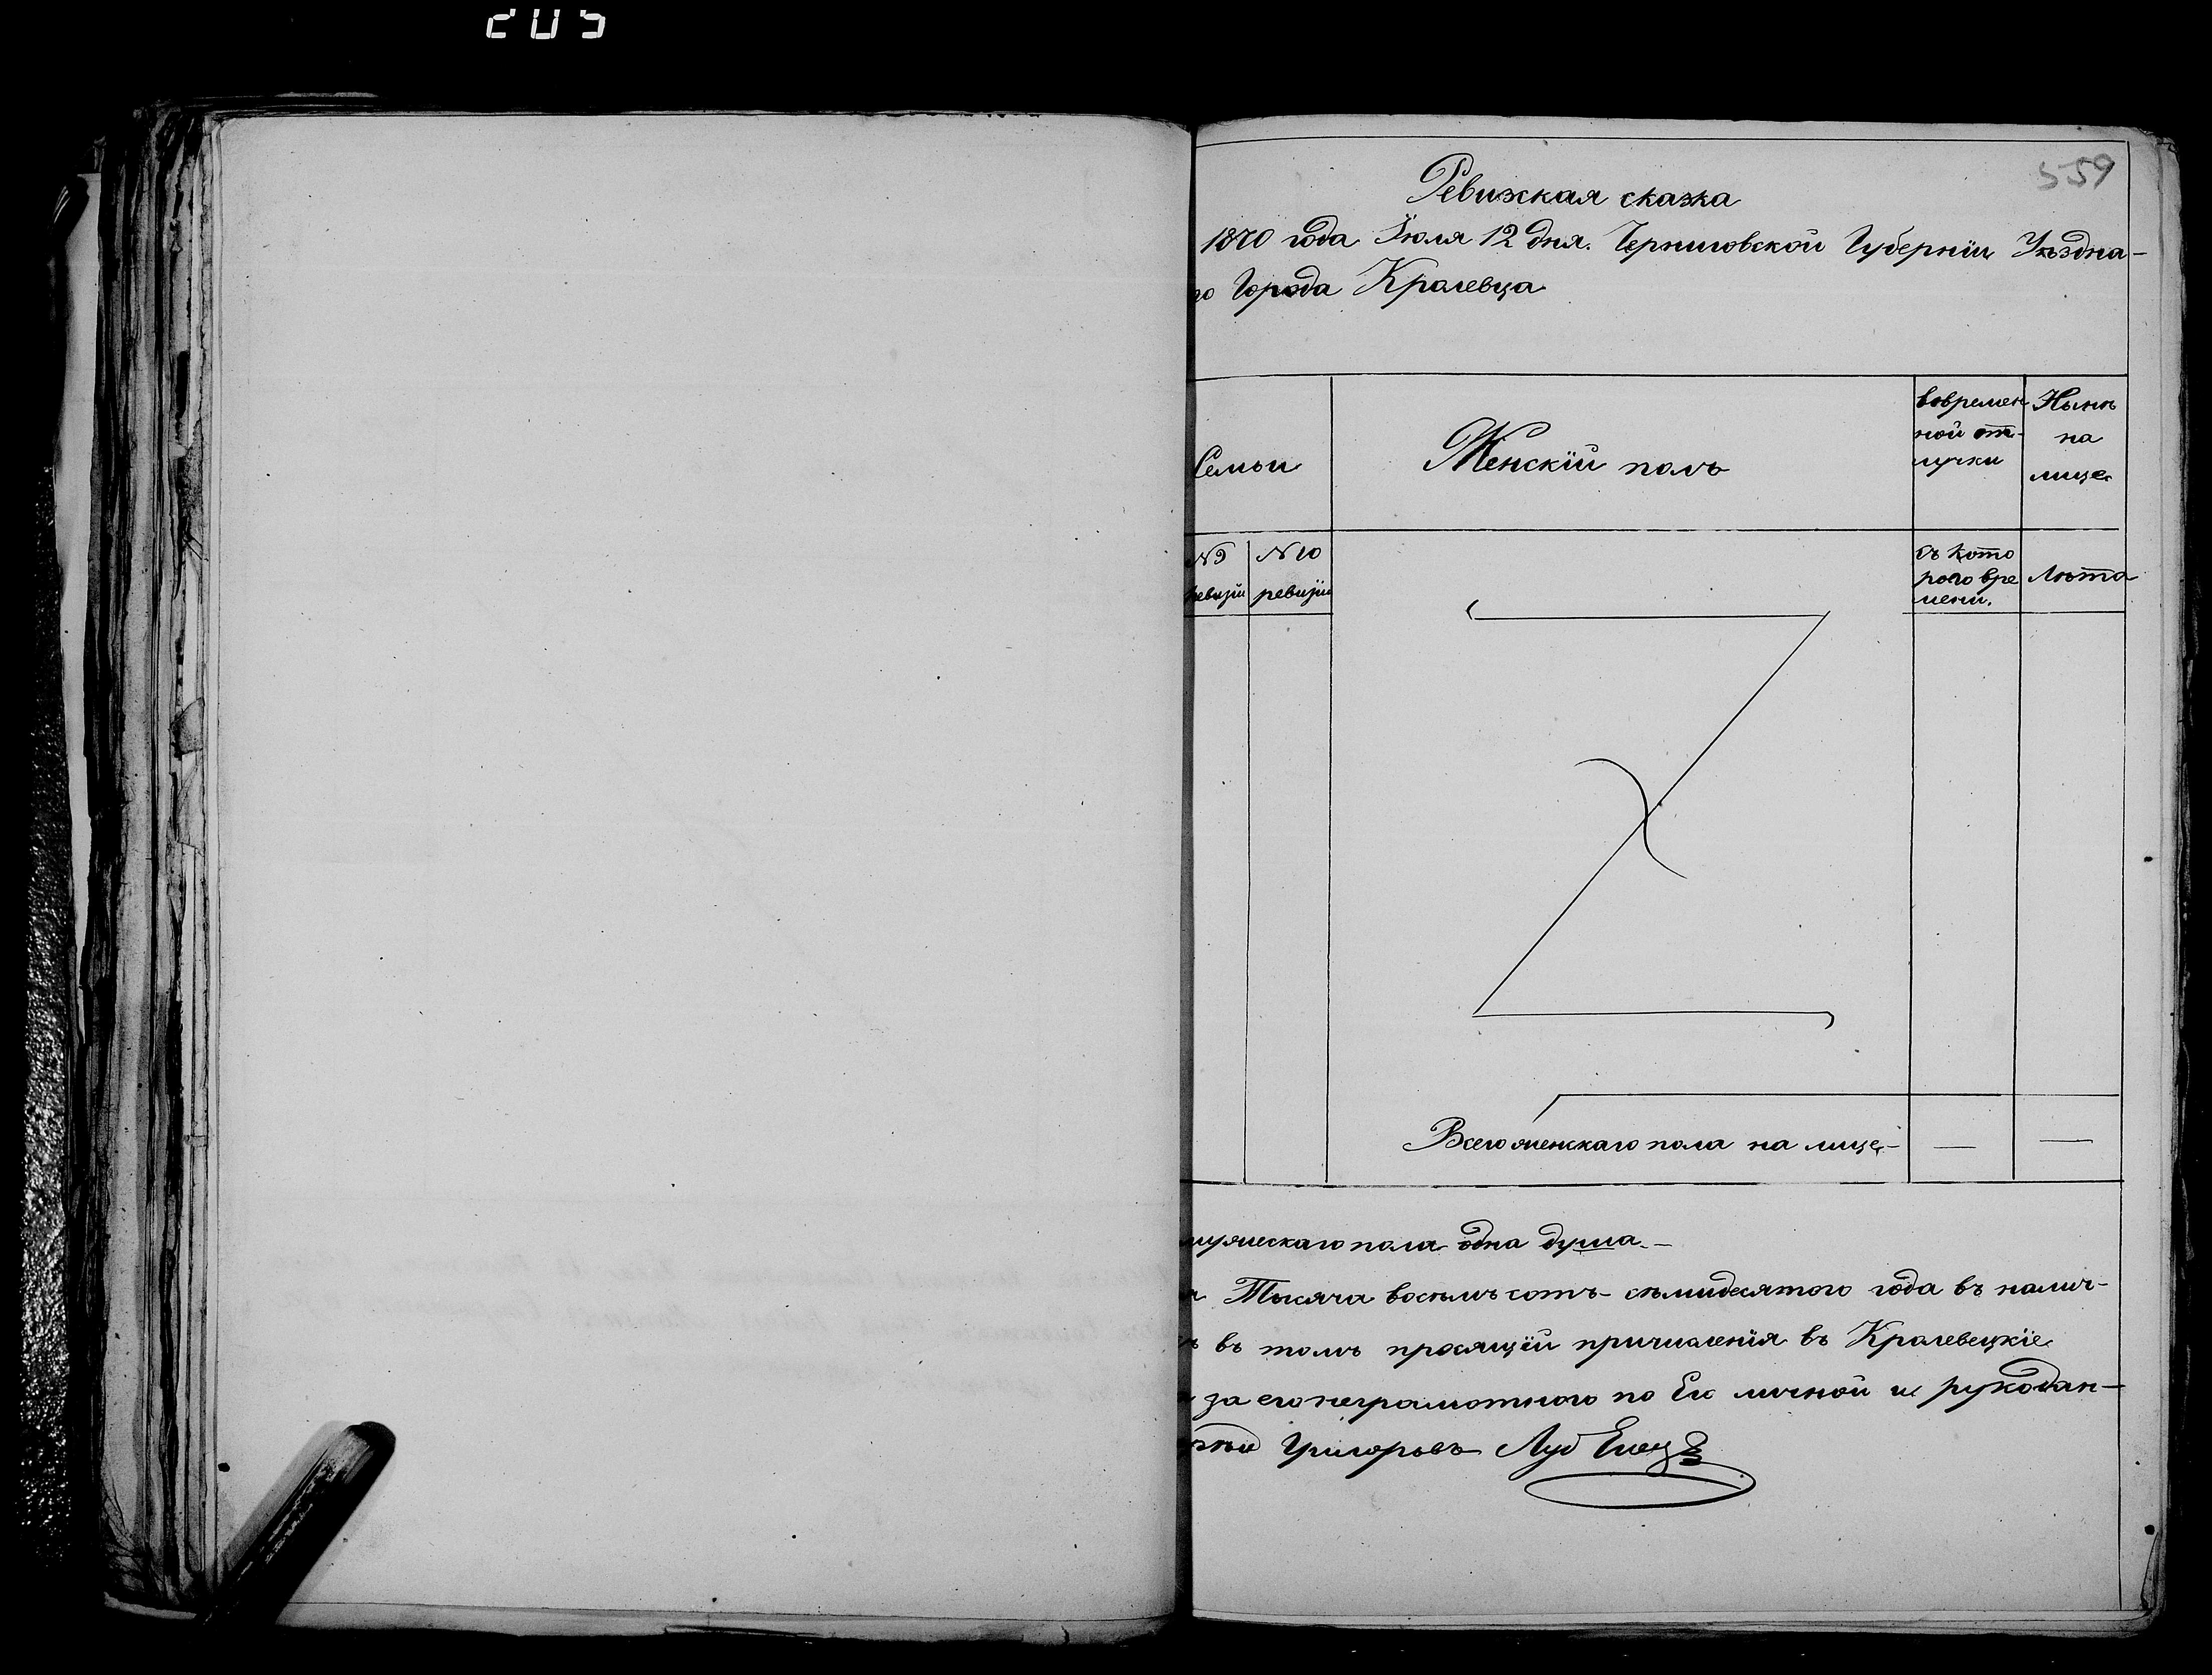 205
559
Ревижская сказка
1870 года Іюля 12 дня. Черниговской Губерніи Уѣздна-
го Города Кралевца
Семьи
Женскій полъ
вовремен
ной от-
лучки
Нынѣ
на
лице
№9
ревизіи
№10
ревизіи
съ кото
рого вре
мени.
Лѣта
Всего женскаго пола на лице-
мужескаго пола одна душа.-
Тысяча восемъ сотъ- сѣмидесятого года въ налич-
въ томъ просящій причисленія въ Кралевецкіе
за его неграмотного по Его личной и рукодан-
Григорьевъ